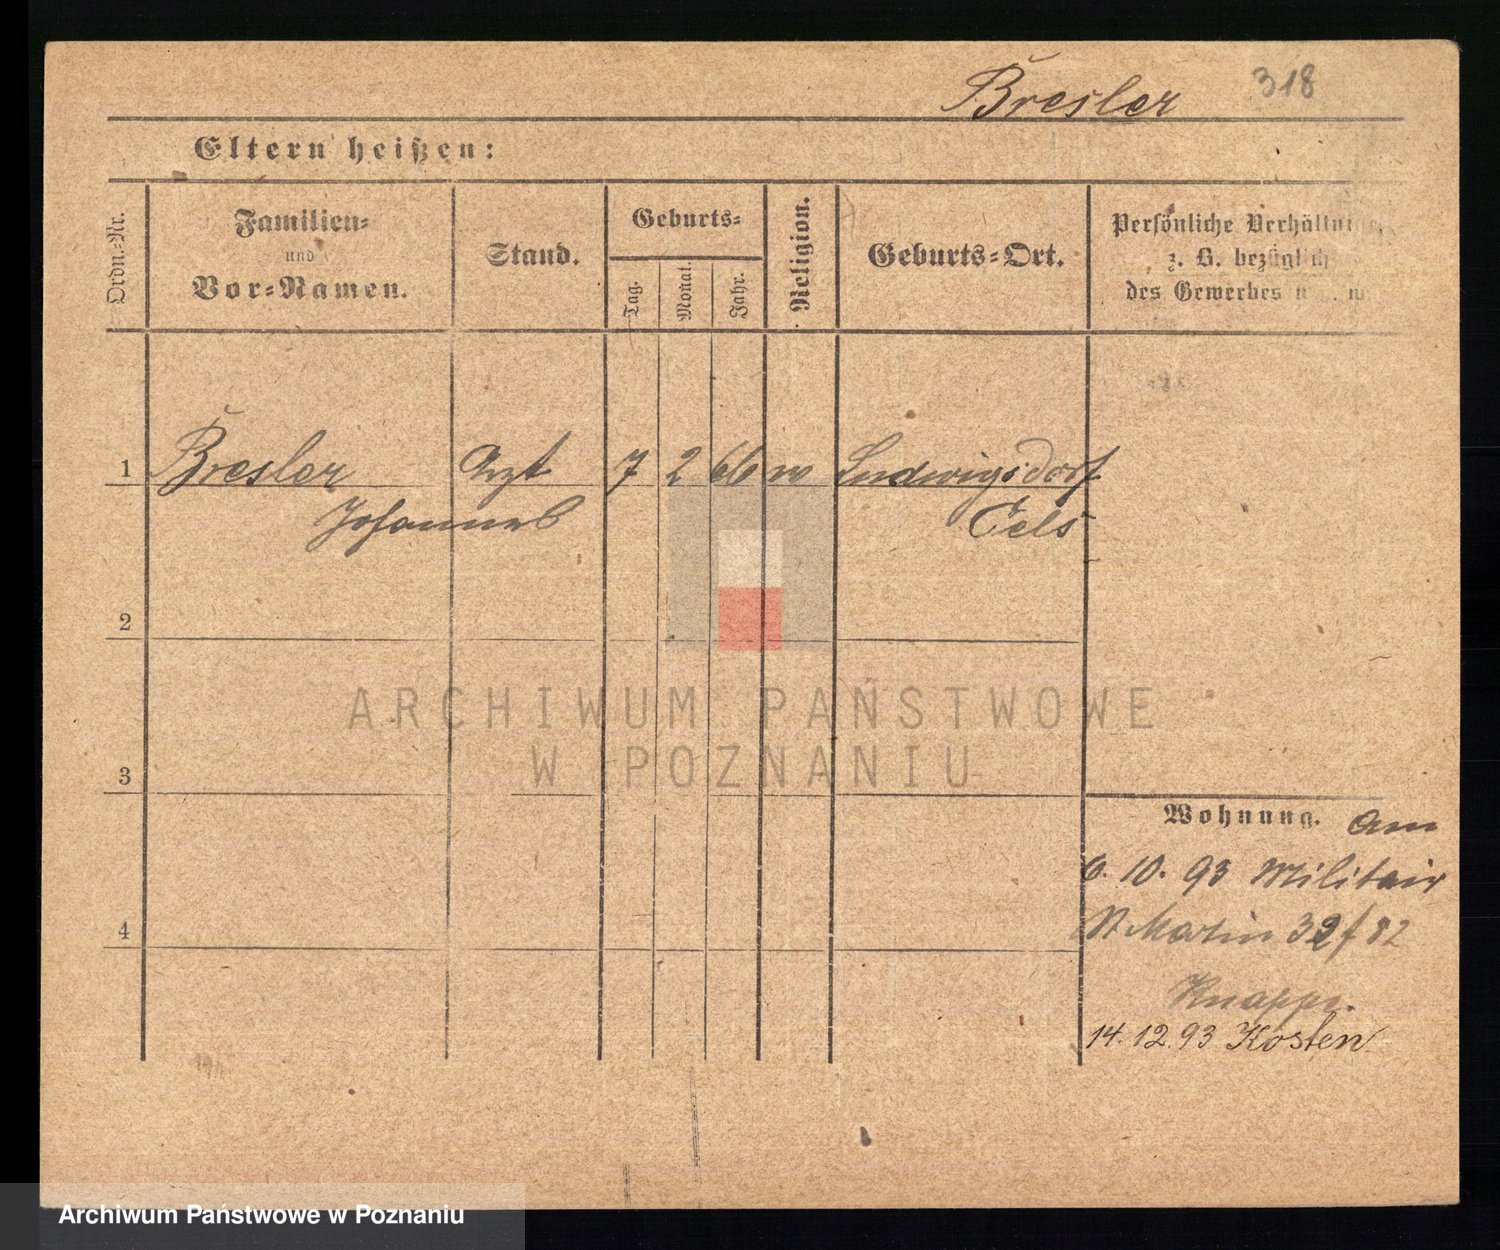 Bresler 318
Eltern heißen:
Ordn.=Nr.
Familien=
und
Vor=Namen.
Stand.
Geburts=
Tag.
Monat.
Jahr.
Religion.
Geburts=Ort.
Persönliche Verhältni
z. B. bezüglich
des Gewerbes u w.
1 Bresler Arzt 7 2 66 Ludwigsdorf
Johannes Oels
2
3
4
Wohnung. Am
6. 10. 93 Militair
St Martin 32/82
Knappe.
14. 12. 93 Kosten
ARCHIWUM PAŃSTWOWE
W POZNANIU
Archiwum Państwowe w Poznaniu